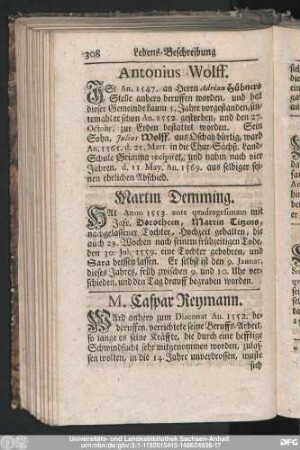 308 Lebens-Beschreibung
Antonius Wolff.
ISt An. 1547. an Herrn Adrian Hübners
Stelle anhero beruffen worden, und hat
dieser Gemeinde kaum 5. Jahre vorgestanden, in-
dem er schon An. 1552 gestorben, und den 27.
Octobr. zur Erden bestattet worden. Sein
Sohn, Julius Wolff, aus Oschatz bürtig, ward
An. 1565. d. 21. Mart. in die Chur-Sächß. Land-
Schule Grimma recipiret, und nahm nach vier
Jahren, d. 11 May, An. 1569. aus selbiger sei-
nen ehrlichen Abschied.
Martin Demming.
HAt Anno 1553. ante quadragesimam mit
Jgfr. Dorotheen, Martin Tizens,
nachgelassener Tochter, Hochzeit gehalten, die
auch 29. Wochen nach seinem frühzeitigen Tode,
den 30. Jul. 1559. eine Tochter gebohren, und
Sara heissen lassen. Er selbst ist den 9. Januar,
dieses Jahres, früh zwischen 9. und 10. Uhr ver-
schieden, und den Tag drauff begraben worden.
M. Caspar Reymann.
WArd anhero zum Diaconat An. 1552. be-
beruffen, verrichtete seine Beruffs-Arbeit,
so lange es seine Kräffte, die durch eine hefftige
Schwindsucht sehr mitgenommen worden, zulas-
sen wolten, in die 14. Jahre unverdrossen, muste
sich
Universitäts- und Landesbibliothek Sachsen-Anhalt
urn:nbn:de:gbv:3:1-1192015415-148624836-17
DFG